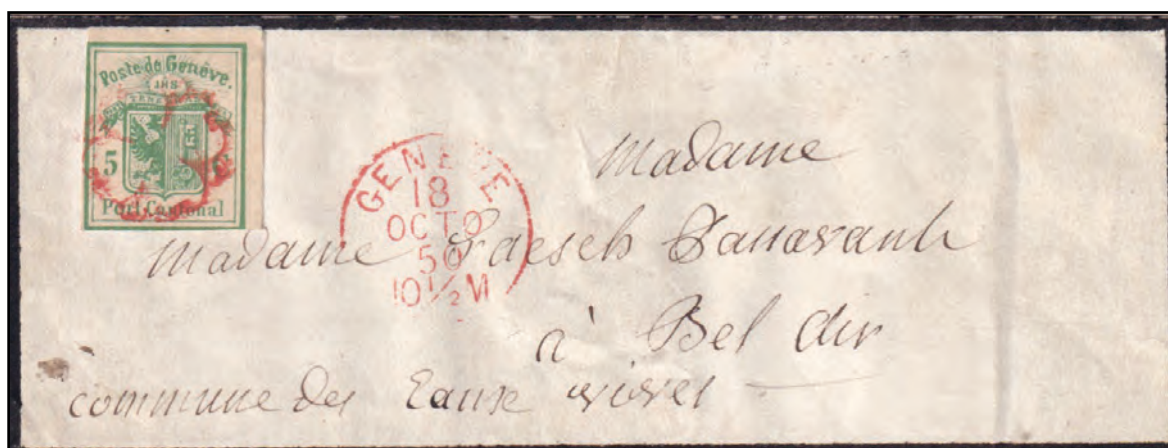 Poste de Genève.
JHS
5
Port Cantonal
GENEVE
18
OCTO
50
10 ½ M
Madame
Madame
à Bel Air
commune des Eaux vives